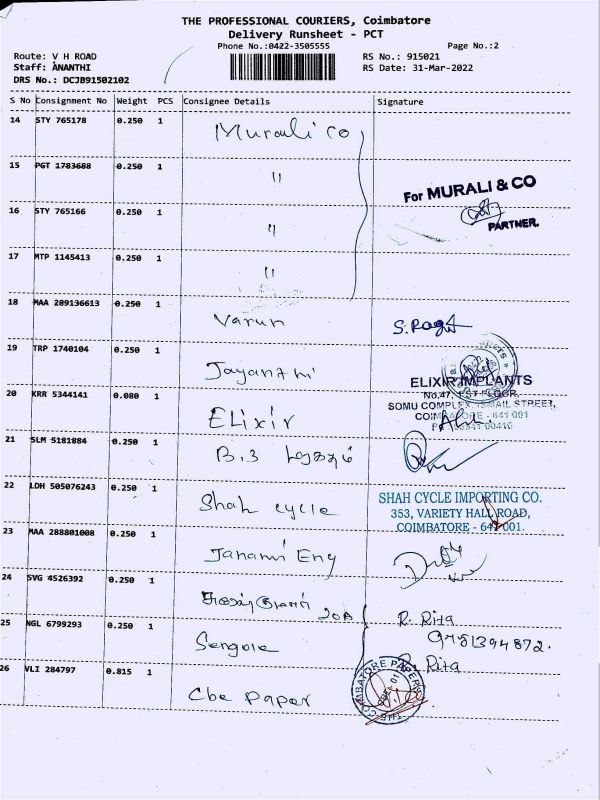 THE PROFESSIONAL COURIERS, Coimbatore
Delivery Runsheet - PCT
Phone No.:0422-3505555 Page No.:2
Route: V H ROAD RS No.: 915021
Staff: ANANTHI RS Date: 31-Mar-2022
DRS No.: DCJB91502102
S No Consignment No Weight PCS Consignee Details Signature
14 STY 765178 0.250 1 Murali co
15 PGT 1783688 0.250 1 "
For MURALI & CO
PARTNER.
16 STY 765166 0.250 1 "
17 MTP 1145413 0.250 1 "
18 MAA 289136613 0.250 1 Varun
19 TRP 1740104 0.250 1 Jayanthi
20 KRR 5344141 0.080 1 ELixir
ELIXIR IMPLANTS
No.47, 1ST FLOOR,
SOMU COMPLEX, ISMAIL STREET,
COIMBATORE - 641 001
21 SLM 5181884 0.250 1 B.3
22 LDH 505076243 0.250 1 Shah cycle
SHAH CYCLE IMPORTING CO.
353, VARIETY HALL ROAD,
COIMBATORE - 641 001.
23 MAA 288801008 0.250 1 Janani Eng
24 SVG 4526392 0.250 1 20A R. Rita
9751394872.
25 NGL 6799293 0.250 1 Sengole R. Rita
26 VLI 284797 0.815 1 Cbe paper
COIMBATORE PAPERS